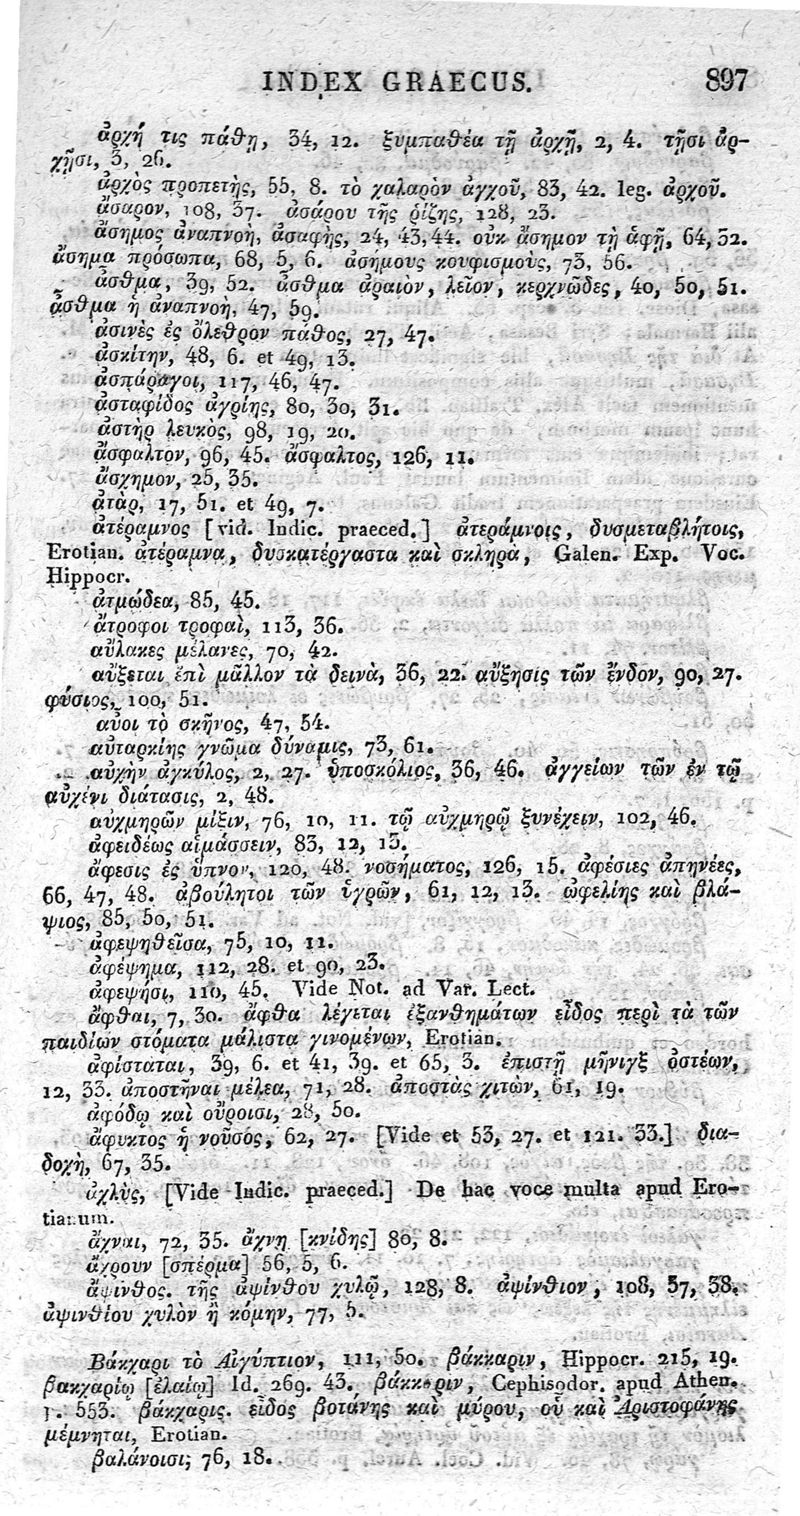 INDEX GRAECUS. 897
ἀρχή τις πάθῃ, 34, 12. ξυμπαθέα τῇ ἀρχῇ, 2, 4. τῇσι ἀρ-
χῇσι, 3, 26.
ἀρχὸς προπετὴς, 55, 8. τὸ χαλαρὸν ἀγχοῦ, 83, 42. leg. ἀρχοῦ.
ἄσαρον, 108, 37. ἀσάρου τῆς ῥίζης, 128, 23.
ἄσημος ἀναπνοὴ, ἀσαφὴς, 24, 43, 44. οὐκ ἄσημον τῇ ἁφῇ, 64, 32.
ἄσημα πρόσωπα, 68, 5, 6. ἀσήμους κουφισμοὺς, 73, 56.
ἄσθμα, 39, 52. ἄσθμα ἀραιὸν, λεῖον, κερχνῶδες, 40, 50, 51.
ἄσθμα ἡ ἀναπνοὴ, 47, 59.
ἀσινὲς ἐς ὄλεθρον πάθος, 27, 47.
ἀσκίτην, 48, 6. et 49, 13.
ἀσπάραγοι, 117, 46, 47.
ἀσταφίδος ἀγρίης, 80, 30, 31.
ἀστὴρ λευκὸς, 98, 19, 20.
ἄσφαλτον, 96, 45. ἄσφαλτος, 126, 11.
ἄσχημον, 25, 35.
ἀτὰρ, 17, 51. et 49, 7.
ἀτέραμνος [vid. Indic. praeced.] ἀτεράμνοις, δυσμεταβλήτοις,
Erotian. ἀτέραμνα, δυσκατέργαστα καὶ σκληρὰ, Galen. Exp. Voc.
Hippocr.
ἀτμώδεα, 85, 45.
ἄτροφοι τροφαὶ, 113, 36.
αὔλακες μέλανες, 70, 42.
αὔξεται ἐπὶ μᾶλλον τὰ δεινὰ, 36, 22. αὔξησις τῶν ἔνδον, 90, 27.
φύσιος, 100, 51.
αὖοι τὸ σκῆνος, 47, 54.
αὐταρκίης γνῶμα δύναμις, 73, 61.
αὐχὴν ἀγκύλος, 2, 27. ὑποσκόλιος, 36, 46. ἀγγείων τῶν ἐν τῷ
αὐχένι διάτασις, 2, 48.
αὐχμηρῶν μίξιν, 76, 10, 11. τῷ αὐχμηρῷ ξυνέχειν, 102, 46.
ἀφειδέως αἱμάσσειν, 83, 12, 13.
ἄφεσις ἐς ὕπνον, 120, 48. νοσήματος, 126, 15. ἀφέσιες ἀπηνέες,
66, 47, 48. ἀβούλητοι τῶν ὑγρῶν, 61, 12, 13. ὠφελίης καὶ βλά-
ψιος, 85, 50, 51.
ἀφεψηθεῖσα, 75, 10, 11.
ἀφέψημα, 112, 28. et 90, 23.
ἀφεψήσι, 110, 45. Vide Not. ad Var. Lect.
ἄφθαι, 7, 30. ἄφθα λέγεται ἐξανθημάτων εἶδος περὶ τὰ τῶν
παιδίων στόματα μάλιστα γινομένων, Erotian.
ἀφίσταται, 39, 6. et 41, 39. et 65, 3. ἐπιστῇ μῆνιγξ ὀστέων,
12, 33. ἀποστῆναι μέλεα, 71, 28. ἀποστὰς χιτὼν, 61, 19.
ἀφόδῳ καὶ οὔροισι, 28, 50.
ἄφυκτος ἡ νοῦσος, 62, 27. [Vide et 53, 27. et 121. 33.] δια-
δοχὴ, 67, 35.
ἀχλὺς, [Vide Indic. praeced.] De hac voce multa apud Ero-
tianum.
ἄχναι, 72, 35. ἄχνη [κνίδης] 86, 8.
ἄχρουν [σπέρμα] 56, 5, 6.
ἄψινθος. τῆς ἀψίνθου χυλῷ, 128, 8. ἀψίνθιον, 108, 37, 38.
ἀψινθίου χυλὸν ἢ κόμην, 77, 5.
Βάκχαρι τὸ Αἰγύπτιον, 111, 50. βάκκαριν, Hippocr. 215, 19.
βακχαρίῳ [ἐλαίῳ] Id. 269. 43. βάκκαριν, Cephisodor. apud Athen.
p. 553. βάκχαρις. εἶδος βοτάνης καὶ μύρου, οὗ καὶ Ἀριστοφάνης
μέμνηται, Erotian.
βαλάνοισι, 76, 18.